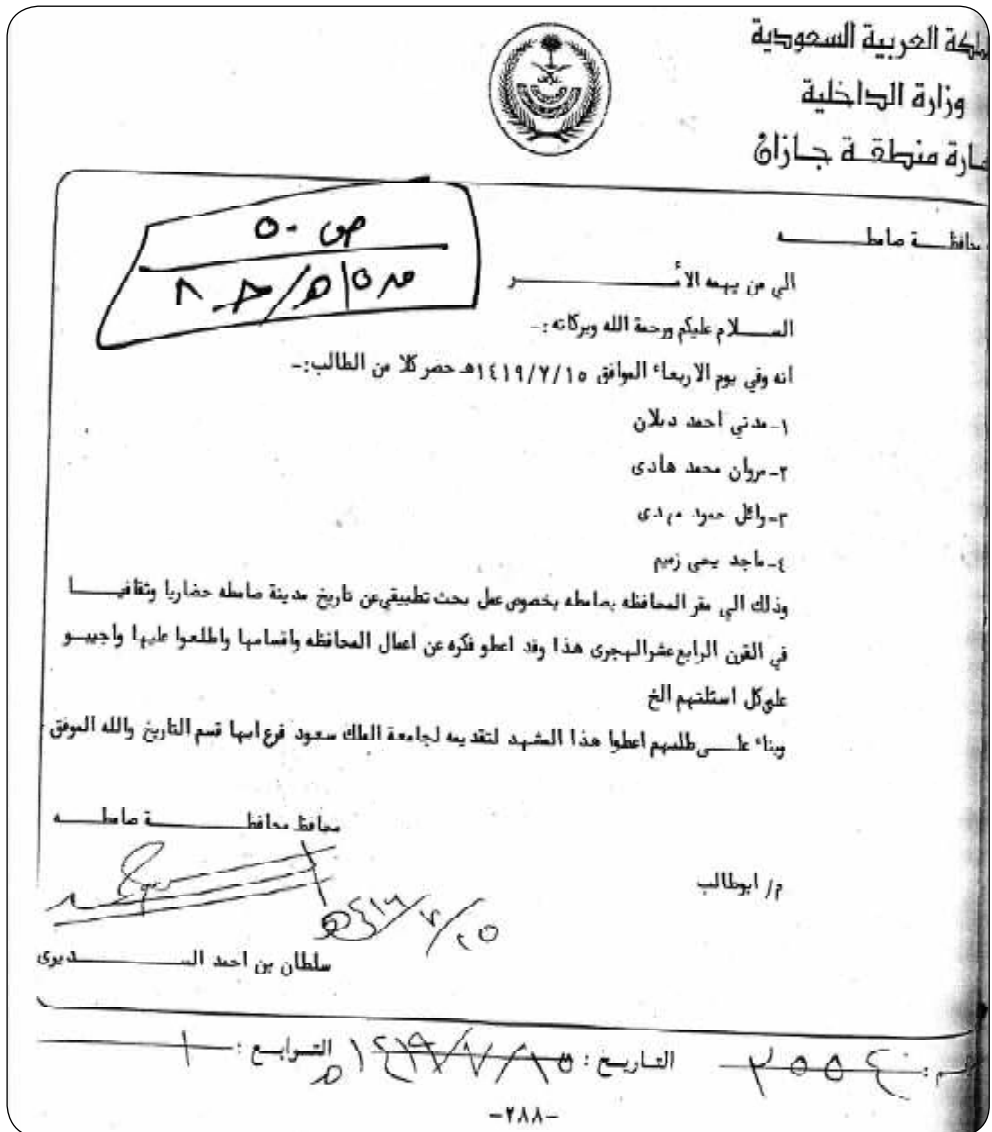 ملكة العربية السعودية
وزارة الداخلية
مارة منطقة جازان
محافظة صامطه
ص ٥٠
الي من يهمه الأمر
السلام عليكم ورحمة الله وبركاته :-
انه وفي يوم الاربعاء الموافق ١٤١٩/٧/١٥هـ حضر كلا من الطالب:-
١-مدني احمد دبلان
٢-مروان محمد هادى
٣-وائل حمود مهدى
٤-ماجد يحيى زميم
وذلك الي مقر المحافظه بصامطه بخصوص عمل بحث تطبيقي عن تاريخ مدينة صامطه حضاريا وثقافيا
في القرن الرابع عشر الهجرى هذا وقد اعطو فكره عن اعمال المحافظه واقسامها واطلعوا عليها واجيبو
على كل اسئلتهم الخ
وبناء على طلبهم اعطوا هذا المشهد لتقديمه لجامعة الملك سعود فرع ابها قسم التاريخ والله الموفق
محافظ محافظة صامطه
م/ ابوطالب
سلطان بن احمد السديرى
التاريخ : ١٤١٩/٧/١٥هـ التوابع : ١
-٢٨٨-